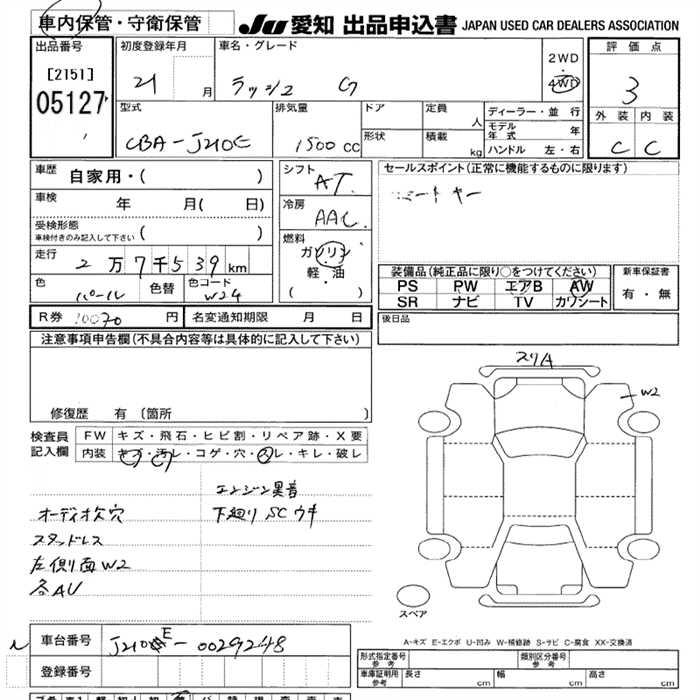 車内保管・守衛保管
JU 愛知 出品申込書 JAPAN USED CAR DEALERS ASSOCIATION
出品番号 初度登録年月 車名・グレード 2WD 評価点
[2151] 21 月 ラッシュ G ・ 3
05127 4WD
型式 排気量 ドア 定員 人 ディーラー・並行 外装 内装
CBA-J210E 1500 CC 形状 積載 kg モデル年式 年 C C
ハンドル 左・右
車歴 自家用・( ) シフト AT セールスポイント(正常に機能するものに限ります)
車検 年 月( 日) 冷房 AAC
受検形態 車検付きのみ記入して下さい ( ) 燃料 ガソリン
走行 2万7千539km 軽・油
( )
色 パール 色替 色コード W24
装備品(純正品に限り○をつけてください) 新車保証書
PS PW エアB AW 有・無
SR ナビ TV カワシート
R券 10070 円 名変通知期限 月 日 後日品
注意事項申告欄(不具合内容等は具体的に記入して下さい)
スリA
W2
修復歴 有 〔箇所 〕
検査員記入欄 FW キズ・飛石・ヒビ割・リペア跡・X要
内装 キズ・汚レ・コゲ・穴・スレ・キレ・破レ
エンジン異音
オーディオ欠穴 下廻りSCウキ
スタッドレス
左側面W2
各AU
スペア
A-キズ E-エクボ U-凹み W-補修跡 S-サビ C-腐食 XX-交換済
車台番号 J210E-0029248
登録番号
形式指定番号 参考 類別区分番号 参考
車庫証明用 参考 長さ cm 幅 cm 高さ cm